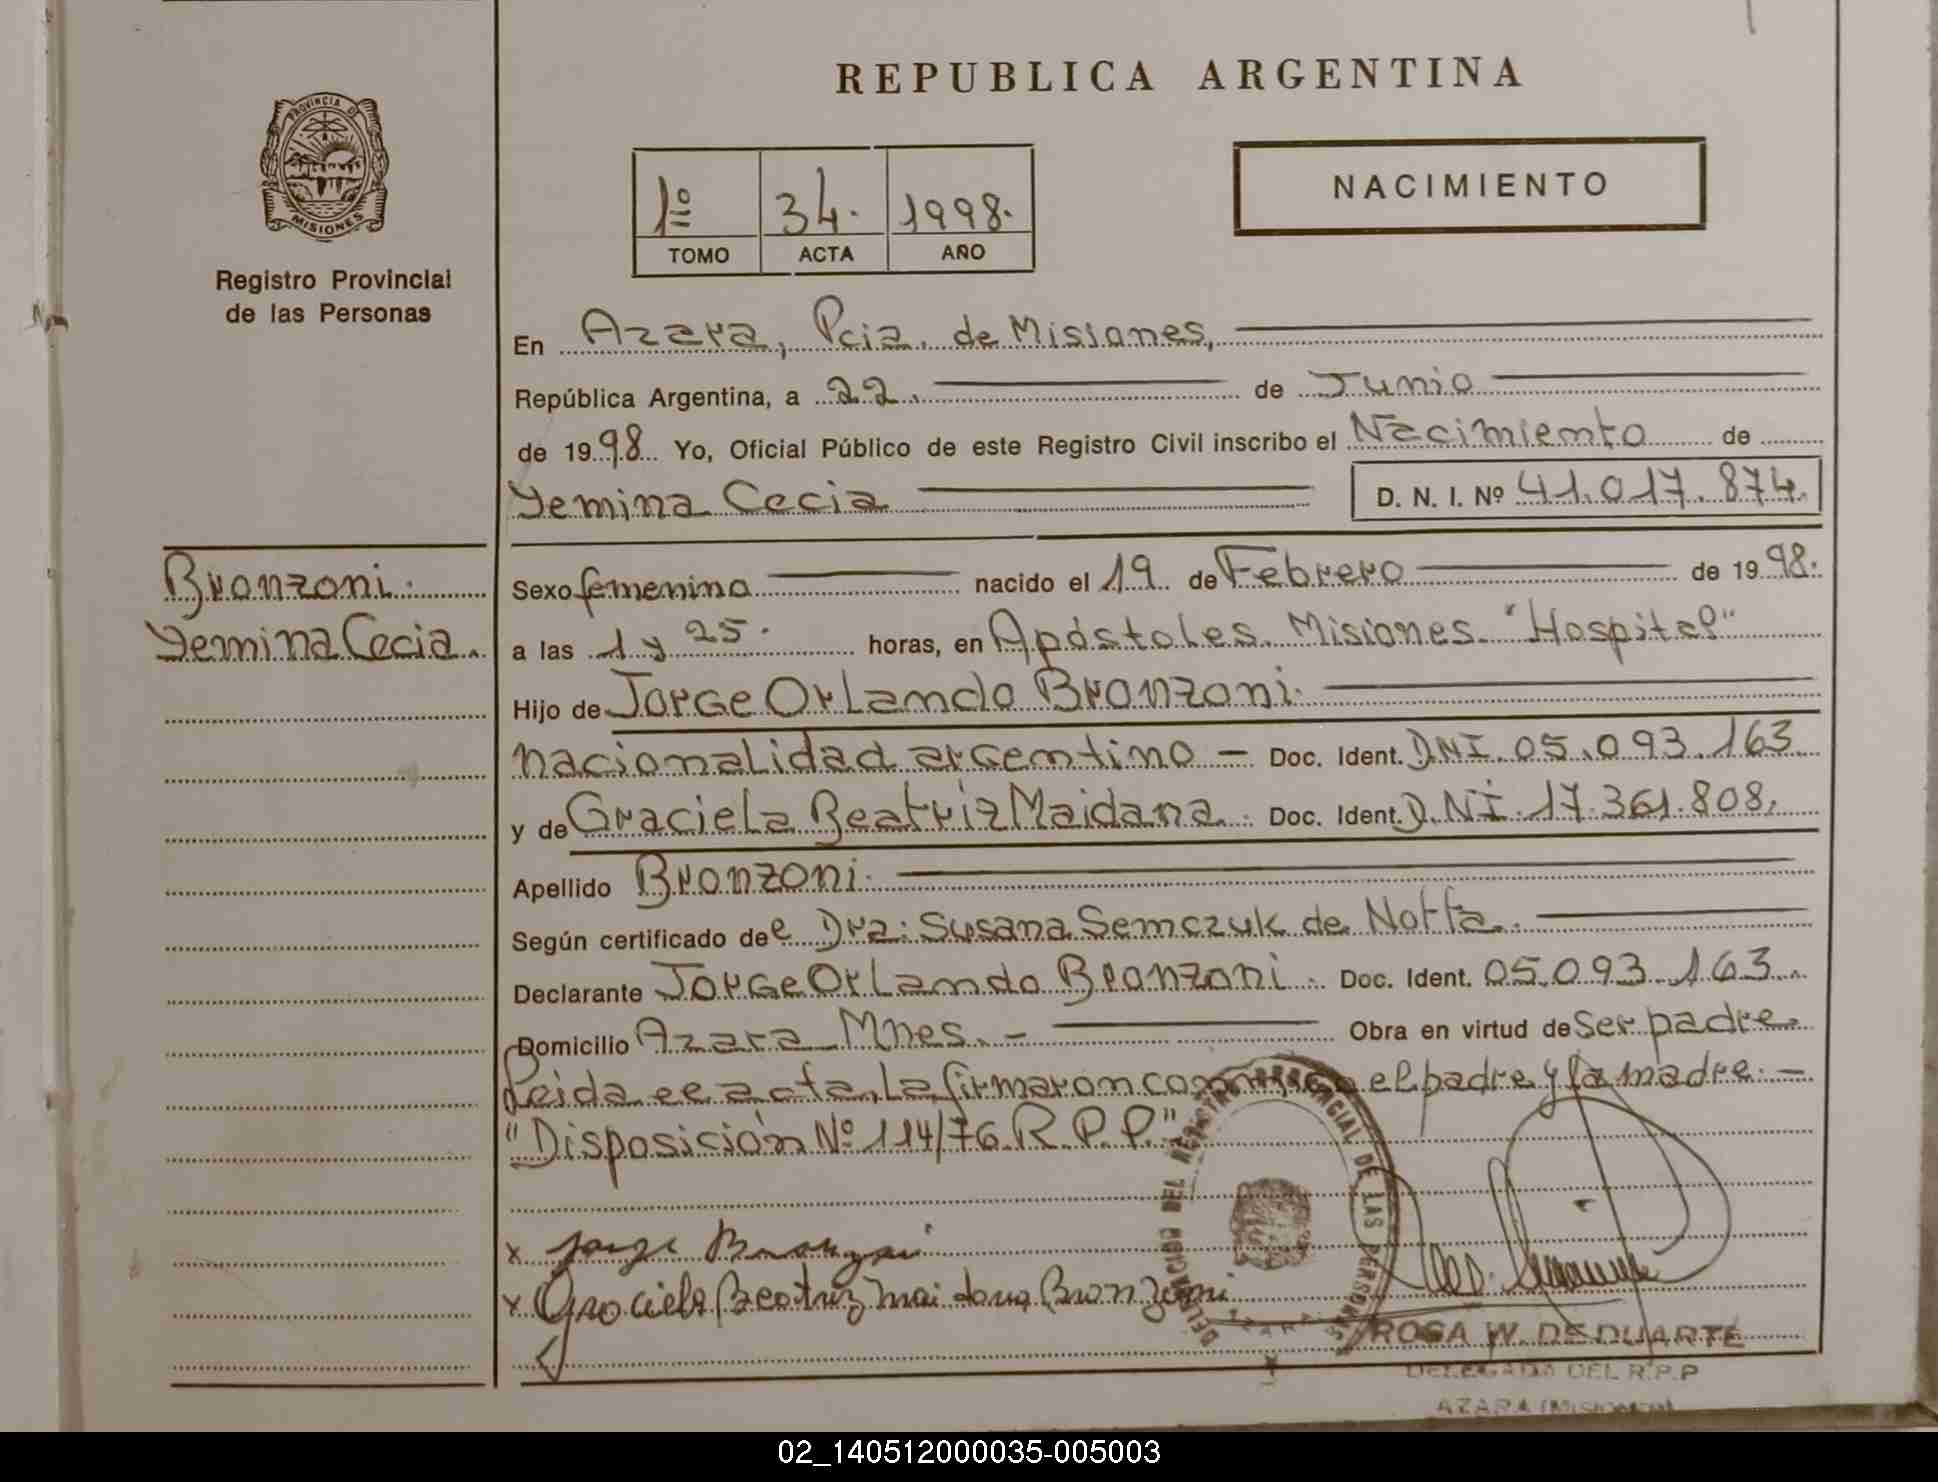 REPUBLICA ARGENTINA
PROVINCIA DE
MISIONES
Registro Provincial
de las Personas
1º 34. 1998.
TOMO ACTA AÑO
NACIMIENTO
En Azara, Pcia. de Misiones,
República Argentina, a 22. de Junio
de 1998 Yo, Oficial Público de este Registro Civil inscribo el Nacimiento de
Yemina Cecia D. N. I. Nº 41.017.874.
Bronzoni.
Yemina Cecia.
Sexo femenino nacido el 19 de Febrero de 1998.
a las 1 y 25. horas, en Apóstoles. Misiones. "Hospital"
Hijo de Jorge Orlando Bronzoni.
nacionalidad argentino — Doc. Ident. DNI. 05.093.163
y de Graciela Beatriz Maidana. Doc. Ident. D.NI. 17.361.808.
Apellido Bronzoni.
Según certificado de Dra: Susana Semczuk de Notta.
Declarante Jorge Orlando Bronzoni. Doc. Ident. 05.093.163.
Domicilio Azara Mnes. - Obra en virtud de ser padre
Leida ee acta, la firmaron conmigo el padre y la madre. —
"Disposición Nº 114/76 R.P.P."
DELEGACION DEL REGISTRO PROVINCIAL DE LAS PERSONAS
AZARA
x Jorge Bronzoni
x Graciela Beatriz Maidana Bronzoni
ROSA W. DE DUARTE
DELEGADA DEL R.P.P
AZARA (Misiones)
02_140512000035-005003